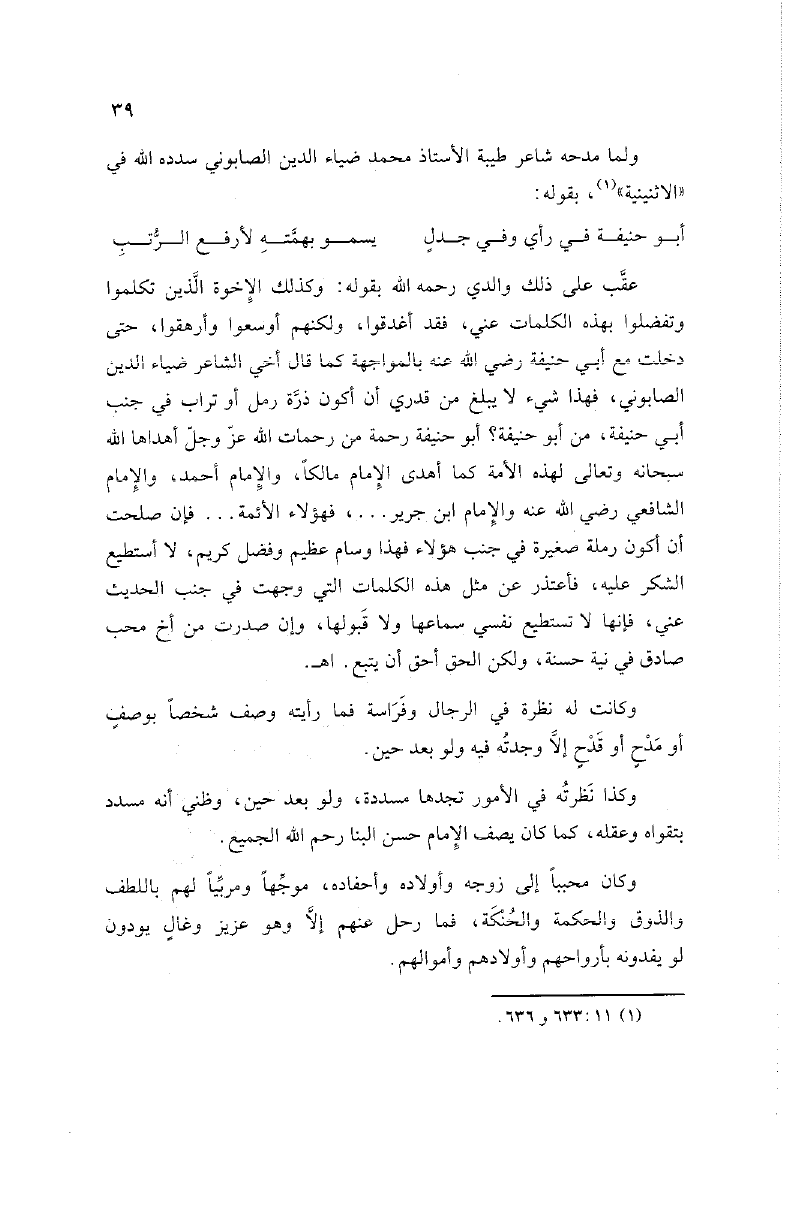 ٣٩
ولما مدحه شاعر طيبة الأستاذ محمد ضياء الدين الصابوني سدده الله في
«الاثنينية»(١)، بقوله:
أبـو حنيفـة فـي رأي وفـي جـدلٍ يسمـو بهمَّتـهِ لأرفـع الـرُّتـبِ
عقَّب على ذلك والدي رحمه الله بقوله: وكذلك الإِخوة الَّذين تكلموا
وتفضلوا بهذه الكلمات عني، فقد أغدقوا، ولكنهم أوسعوا وأرهقوا، حتى
دخلت مع أبـي حنيفة رضي الله عنه بالمواجهة كما قال أخي الشاعر ضياء الدين
الصابوني، فهذا شيء لا يبلغ من قدري أن أكون ذرَّة رمل أو تراب في جنب
أبـي حنيفة، من أبو حنيفة؟ أبو حنيفة رحمة من رحمات الله عزّ وجلّ أهداها الله
سبحانه وتعالى لهذه الأمة كما أهدى الإِمام مالكاً، والإِمام أحمد، والإِمام
الشافعي رضي الله عنه والإِمام ابن جرير...، فهؤلاء الأئمة... فإن صلحت
أن أكون رملة صغيرة في جنب هؤلاء فهذا وسام عظيم وفضل كريم، لا أستطيع
الشكر عليه، فأعتذر عن مثل هذه الكلمات التي وجهت في جنب الحديث
عني، فإنها لا تستطيع نفسي سماعها ولا قَبولها، وإن صدرت من أخ محب
صادق في نية حسنة، ولكن الحق أحق أن يتبع. اهـ.
وكانت له نظرة في الرجال وفَرَاسة فما رأيته وصف شخصاً بوصفٍ
أو مَدْحٍ أو قَدْحٍ إلاَّ وجدتُه فيه ولو بعد حين.
وكذا نَظرتُه في الأمور تجدها مسددة، ولو بعد حين، وظني أنه مسدد
بتقواه وعقله، كما كان يصف الإِمام حسن البنا رحم الله الجميع.
وكان محبباً إلى زوجه وأولاده وأحفاده، موجِّهاً ومربِّياً لهم باللطف
والذوق والحكمة والحُنْكَة، فما رحل عنهم إلاَّ وهو عزيز وغالٍ يودون
لو يفدونه بأرواحهم وأولادهم وأموالهم.
(١) ١١: ٦٣٣ و ٦٣٦.